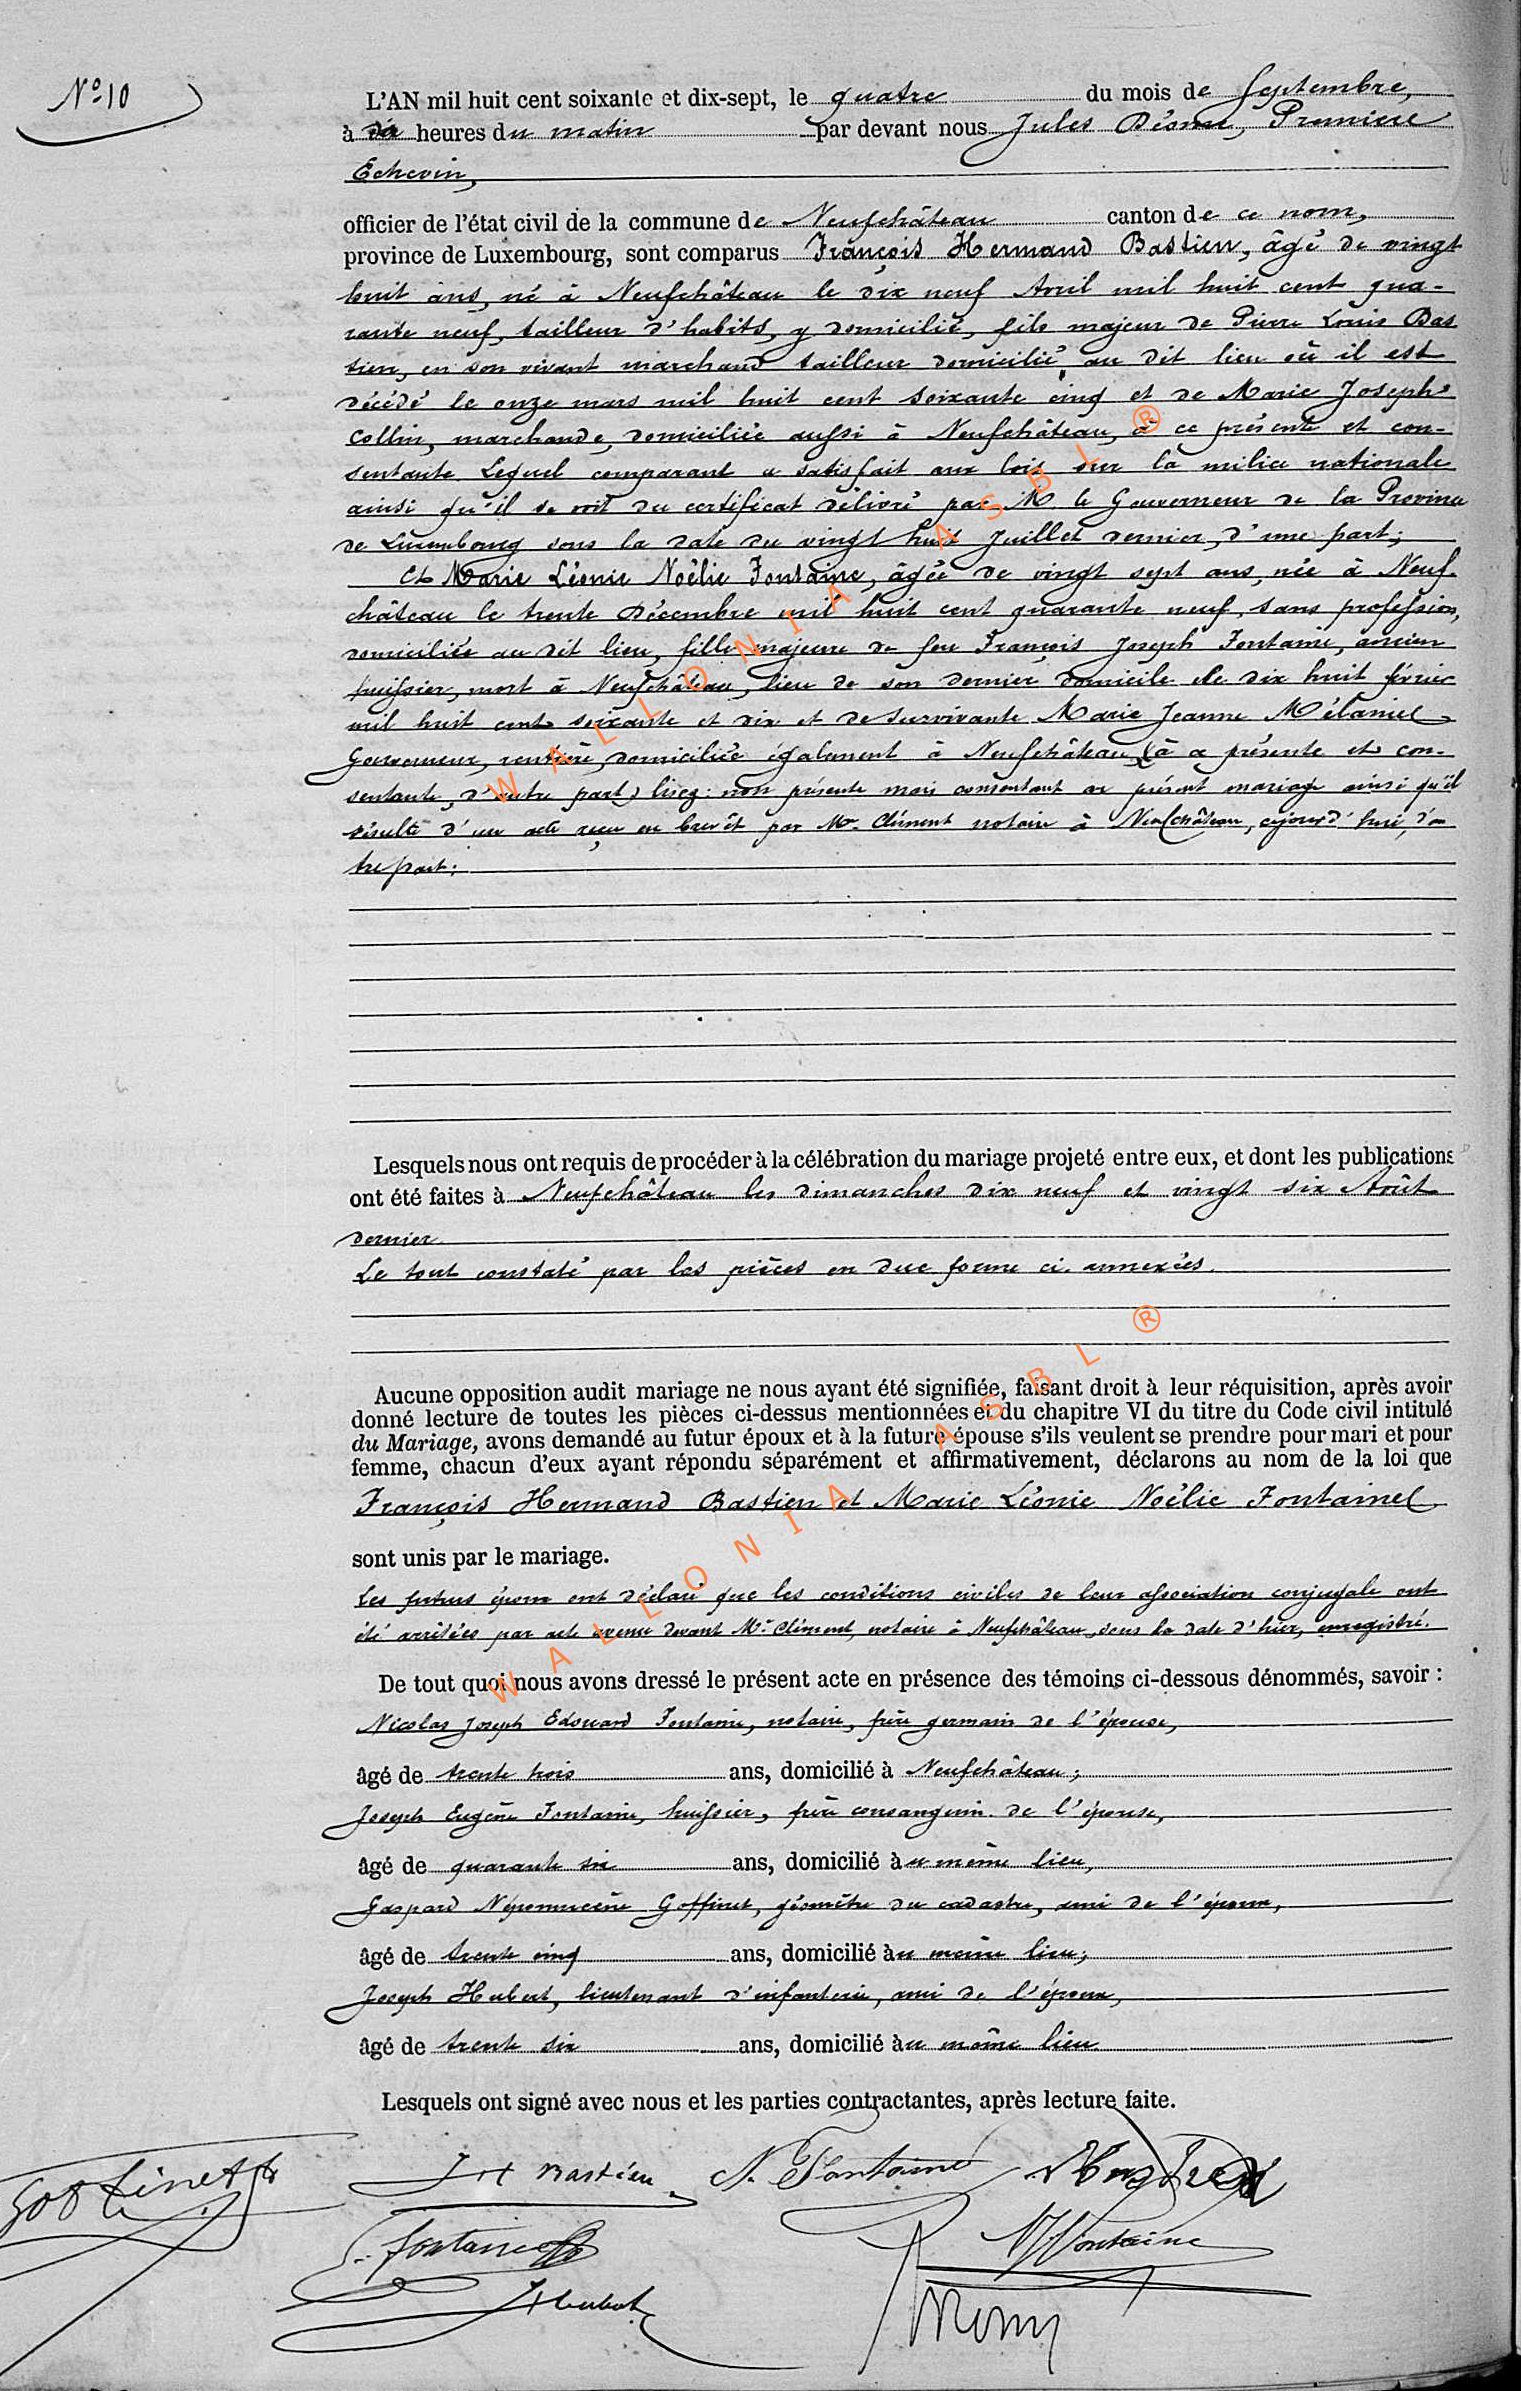 N° 10
L'AN mil huit cent soixante et dix-sept, le quatre du mois de Septembre,
à dix heures du matin par devant nous Jules Première
Echevin,
officier de l'état civil de la commune de Neufchâteau canton de ce nom,
province de Luxembourg, sont comparus François Hermand Bastien, âgé de vingt
huit ans, né à Neufchâteau le dix neuf Avril mil huit cent qua-
rante neuf, tailleur d'habits, y domicilié, fils majeur de Pierre Louis Bas
tien, en son vivant marchand tailleur domicilié au dit lieu où il est
décédé le onze mars mil huit cent soixante cinq et de Marie Joseph
Collin, marchande, domiciliée aussi à Neufchâteau, à ce présente et con-
sentante. Lequel comparant a satisfait aux lois sur la milice nationale
ainsi qu'il se voit du certificat délivré par M. le Gouverneur de la Province
de Luxembourg sous la date du vingt huit Juillet dernier, d'une part;
Et Marie Léonie Noëlie Fontaine, âgée de vingt sept ans, née à Neuf-
château le trente Décembre mil huit cent quarante neuf, sans profession,
domiciliée au dit lieu, fille majeure de feu François Joseph Fontaine, ancien
huissier, mort à Neufchâteau, lieu de son dernier domicile le dix huit février
mil huit cent soixante et dix et de survivante Marie Jeanne Mélanie
Gouverneur, rentière, domiciliée également à Neufchâteau, (à ce présente et con-
sentante, d'autre part) lisez: non présente mais consentant au présent mariage ainsi qu'il
résulte d'un acte reçu en brevêt par Me. Clément notaire à Neufchâteau, cejourd'hui, d'au
tre part;
Lesquels nous ont requis de procéder à la célébration du mariage projeté entre eux, et dont les publications
ont été faites à Neufchâteau les dimanches dix neuf et vingt six Août
dernier.
Le tout constaté par les pièces en due forme ci-annexées.
Aucune opposition audit mariage ne nous ayant été signifiée, faisant droit à leur réquisition, après avoir
donné lecture de toutes les pièces ci-dessus mentionnées et du chapitre VI du titre du Code civil intitulé
du Mariage, avons demandé au futur époux et à la future épouse s'ils veulent se prendre pour mari et pour
femme, chacun d'eux ayant répondu séparément et affirmativement, déclarons au nom de la loi que
François Hermand Bastien et Marie Léonie Noëlie Fontaine
sont unis par le mariage.
Les futurs époux ont déclaré que les conditions civiles de leur association conjugale ont
été arrêtées par acte avenu devant Me. Clément, notaire à Neufchâteau, sous la date d'hier, enregistré.
De tout quoi nous avons dressé le présent acte en présence des témoins ci-dessous dénommés, savoir :
Nicolas Joseph Edouard Fontaine, notaire, frère germain de l'épouse,
âgé de trente trois ans, domicilié à Neufchâteau;
Joseph Eugène Fontaine, huissier, frère consanguin de l'épouse,
âgé de quarante six ans, domicilié au même lieu,
Gaspard Népomucène Goffinet, géomètre du cadastre, ami de l'époux,
âgé de trente cinq ans, domicilié au même lieu;
Joseph Hubert, lieutenant d'infanterie, ami de l'époux,
âgé de trente six ans, domicilié au même lieu
Lesquels ont signé avec nous et les parties contractantes, après lecture faite.
Goffinet JH Bastien N. Fontaine
Fontaine Fontaine
Hubert
WALLONIA ASBL ®
WALLONIA ASBL ®